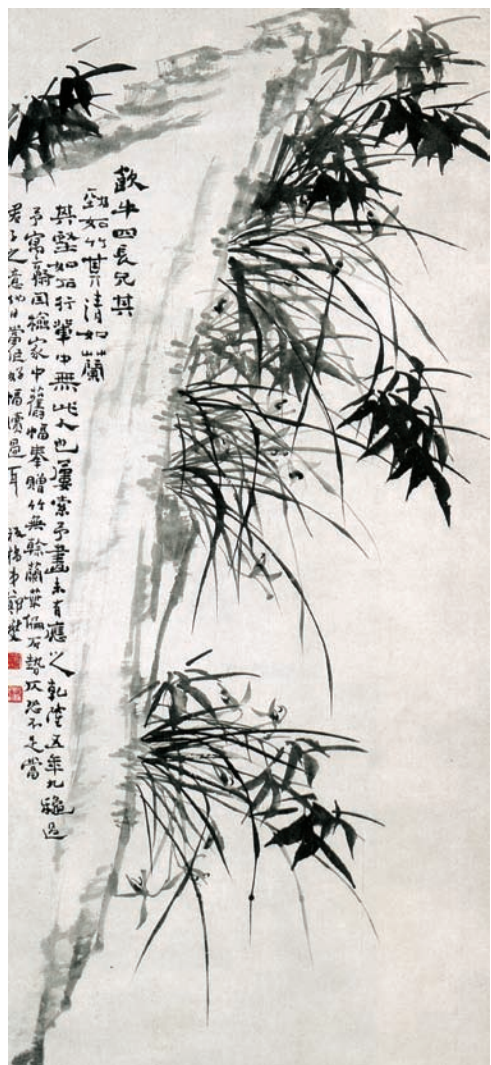 歗牛四長兄其
勁如竹其清如蘭
其堅如石行輩中無此人也屢索予畫未有應之乾隆五年九龝過
予寓齋因檢家中舊幅奉贈竹無餘蘭葉偏石勢仄恐不足當
君子之意他日當作好幅贖過耳 板橋弟鄭燮